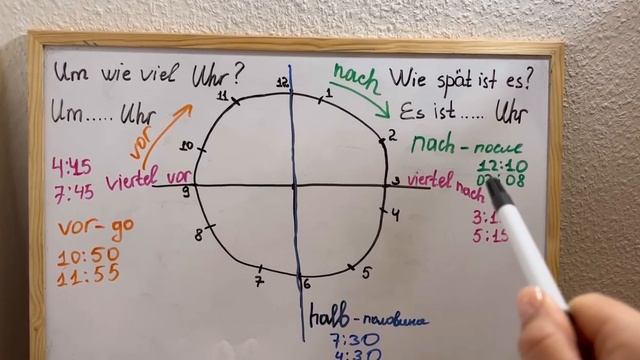 Um wie viel Uhr?
Um..... Uhr
vor
nach
Wie spät ist es?
Es ist..... Uhr
nach - после
12:10
4:45
7:45
viertel vor
viertel nach
5:15
vor - до
10:50
11:55
12
1
2
3
4
5
6
7
8
9
10
11
halb - половина
7:30
4:30